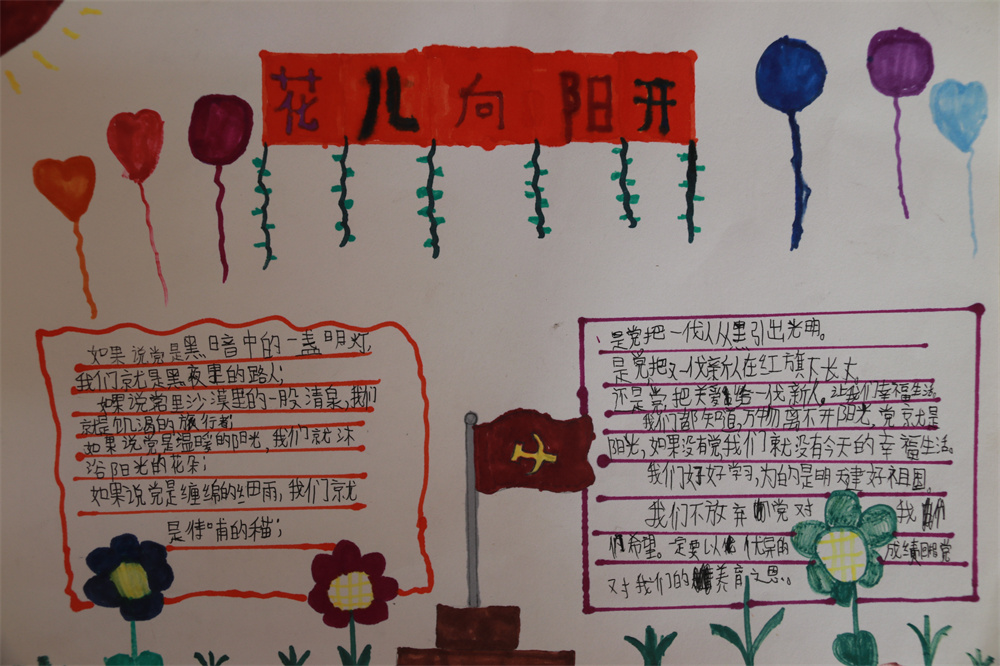 花儿向阳开
如果说党是黑暗中的一盏明灯,
我们就是黑夜里的路人;
如果说党是沙漠里的一股清泉,我们
就是饥渴的旅行者
如果说党是温暖的阳光,我们就沐
浴阳光的花朵;
如果说党是缠绵的细雨,我们就
是待哺的苗;
是党把一代人从黑引出光明。
是党把又一代新人在红旗下长大
还是党把关爱给一代新人。让我们幸福生活。
我们都知道,万物离不开阳光,党就是
阳光,如果没有党,我们就没有今天的幸福生活。
我们好好学习,为的是明天建好祖国。
我们不放弃党对 我们
希望。一定要以优异的 成绩回报党
对我们的养育之恩。